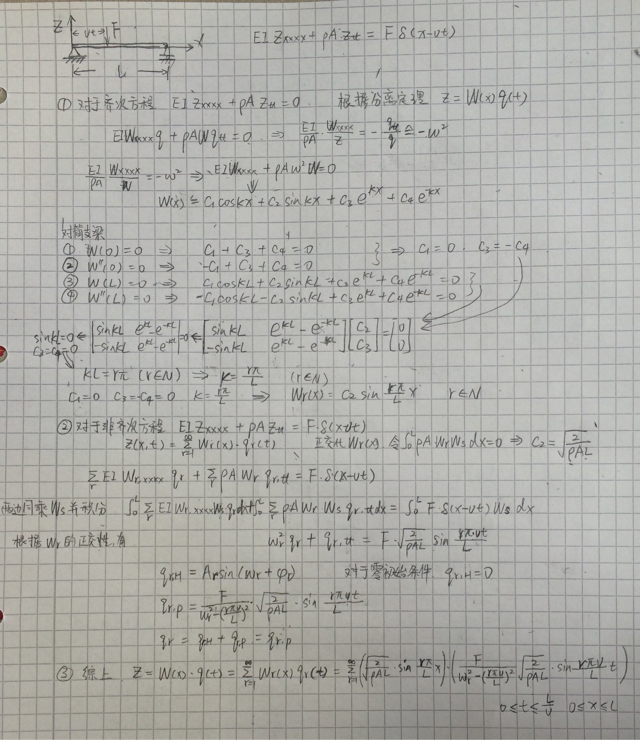 Z ← vt → F x L
EI Zxxxx + ρA Ztt = F δ(x-vt)
① 对于齐次方程 EI Zxxxx + ρA Ztt = 0. 根据分离定理 Z = W(x) q(t)
EIWxxxx q + ρA W qtt = 0 ⇒ EI/ρA · Wxxxx/Z = - qtt/q ≙ -w²
EI/ρA Wxxxx/W = -w² ⇒ EIWxxxx + ρA w² W = 0
W(x) = C₁coskx + C₂ sinkx + C₃ e^kx + C₄ e^-kx
对简支梁
① W(0) = 0 ⇒ C₁ + C₃ + C₄ = 0 } ⇒ C₁ = 0. C₃ = -C₄
② W''(0) = 0 ⇒ -C₁ + C₃ + C₄ = 0
③ W(L) = 0 ⇒ C₁coskL + C₂sinkL + C₃e^kL + C₄e^-kL = 0 }
④ W''(L) = 0 ⇒ -C₁coskL - C₂sinkL + C₃e^kL + C₄e^-kL = 0
sinkL=0 ⇐ |sinkL e^kL-e^-kL| =0 ⇐ [sinkL e^kL - e^-kL] [C₂] = [0]
C₃=C₄=0 |-sinkL e^kL-e^-kL| [-sinkL e^kL - e^-kL] [C₃] [0]
kL = rπ (r∈N) ⇒ k = rπ/L (r∈N)
C₁=0 C₃=-C₄=0 k = rπ/L ⇒ Wr(x) = C₂ sin rπ/L x r∈N
② 对于非齐次方程 EI Zxxxx + ρA Ztt = F·δ(x-vt)
Z(x,t) = ∞Σr=1 Wr(x)·qr(t) 正交化 Wr(x) 令 ∫₀ᴸ ρA WrWs dx = 0 ⇒ C₂ = √(2/ρAL)
Σr EI Wr,xxxx qr + Σr ρA Wr qr,tt = F·δ(x-vt)
两边同乘 Ws 并积分 ∫₀ᴸ Σr EI Wr,xxxx Ws qr dx + ∫₀ᴸ Σr ρA Wr Ws qr,tt dx = ∫₀ᴸ F·δ(x-vt) Ws dx
根据 Wr 的正交性,有 wr² qr + qr,tt = F·√(2/ρAL) sin rπvt/L
qr,H = Ar sin(wr + φr) 对于零初始条件, qr,H = 0
qr,p = F/(wr²-(rπv/L)²) √(2/ρAL) · sin rπvt/L
qr = qr,H + qr,p = qr,p
③ 综上 Z = W(x)·q(t) = ∞Σr=1 Wr(x) qr(t) = ∞Σr=1 (√(2/ρAL) · sin rπ/L x)·(F/(wr²-(rπv/L)²) √(2/ρAL) · sin rπv/L t)
0≤t≤L/v 0≤x≤L